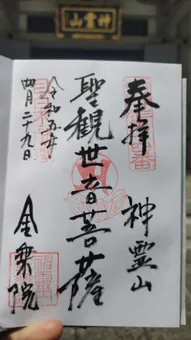 山靈神
奉拝
神霊山
聖観世音菩薩
令和五年
四月二十九日
金乗院